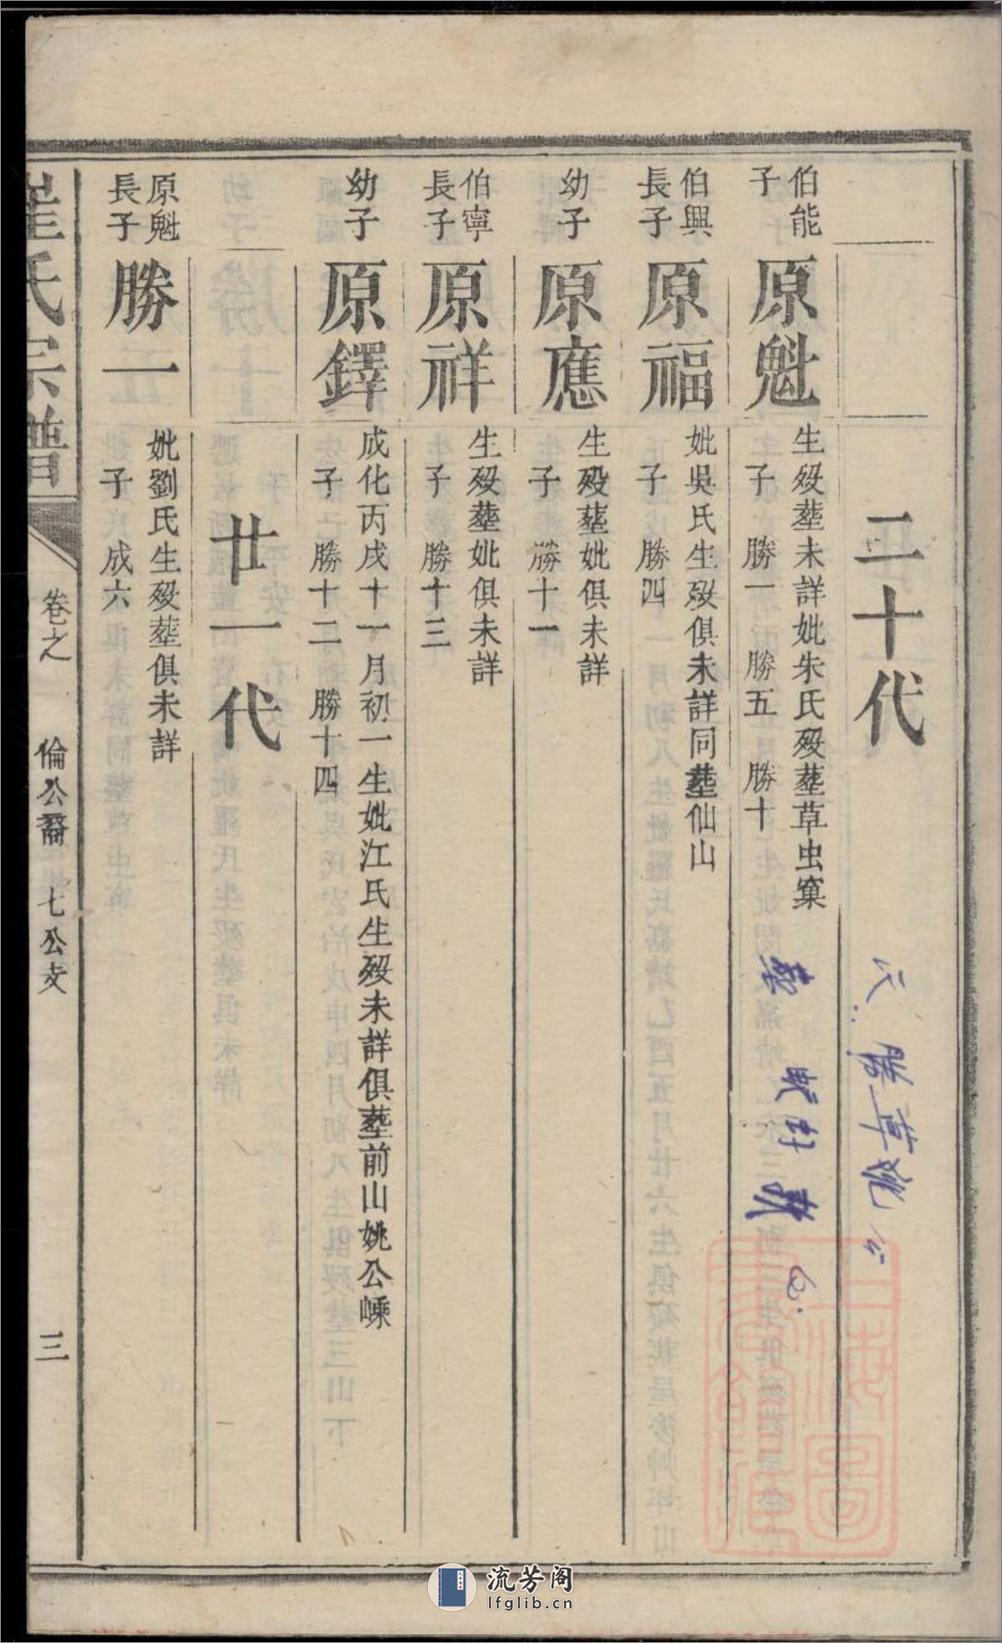 二十代
伯能
子
原魁
生殁塟未詳妣朱氏殁塟草虫窠
子 勝一 勝五 勝十
伯興
長子
原福
妣吳氏生殁俱未詳同塟仙山
子 勝四
幼子
原應
生殁塟妣俱未詳
子 勝十一
伯寧
長子
原祥
生殁塟妣俱未詳
子 勝十三
幼子
原鐸
成化丙戌十一月初一生妣江氏生殁未詳俱塟前山姚公嵊
子 勝十二 勝十四
廿一代
原魁
長子
勝一
妣劉氏生殁塟俱未詳
子 成六
崔氏宗譜
卷之一 倫公裔 七公支
三
流芳阁
lfglib.cn